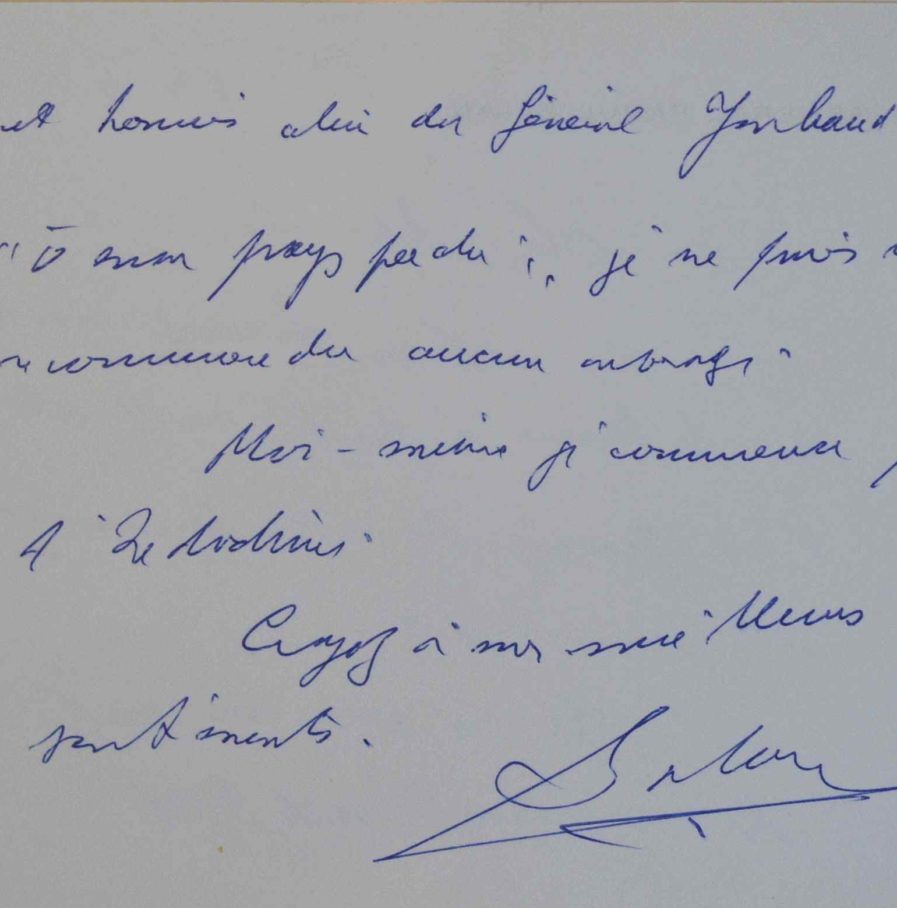 et hormis celui du Général Jouhaud
"Ô mon pays perdu", je ne puis
recommander aucun ouvrage.
Moi-même je commence
à
Croyez à mes meilleurs
sentiments.
Salan